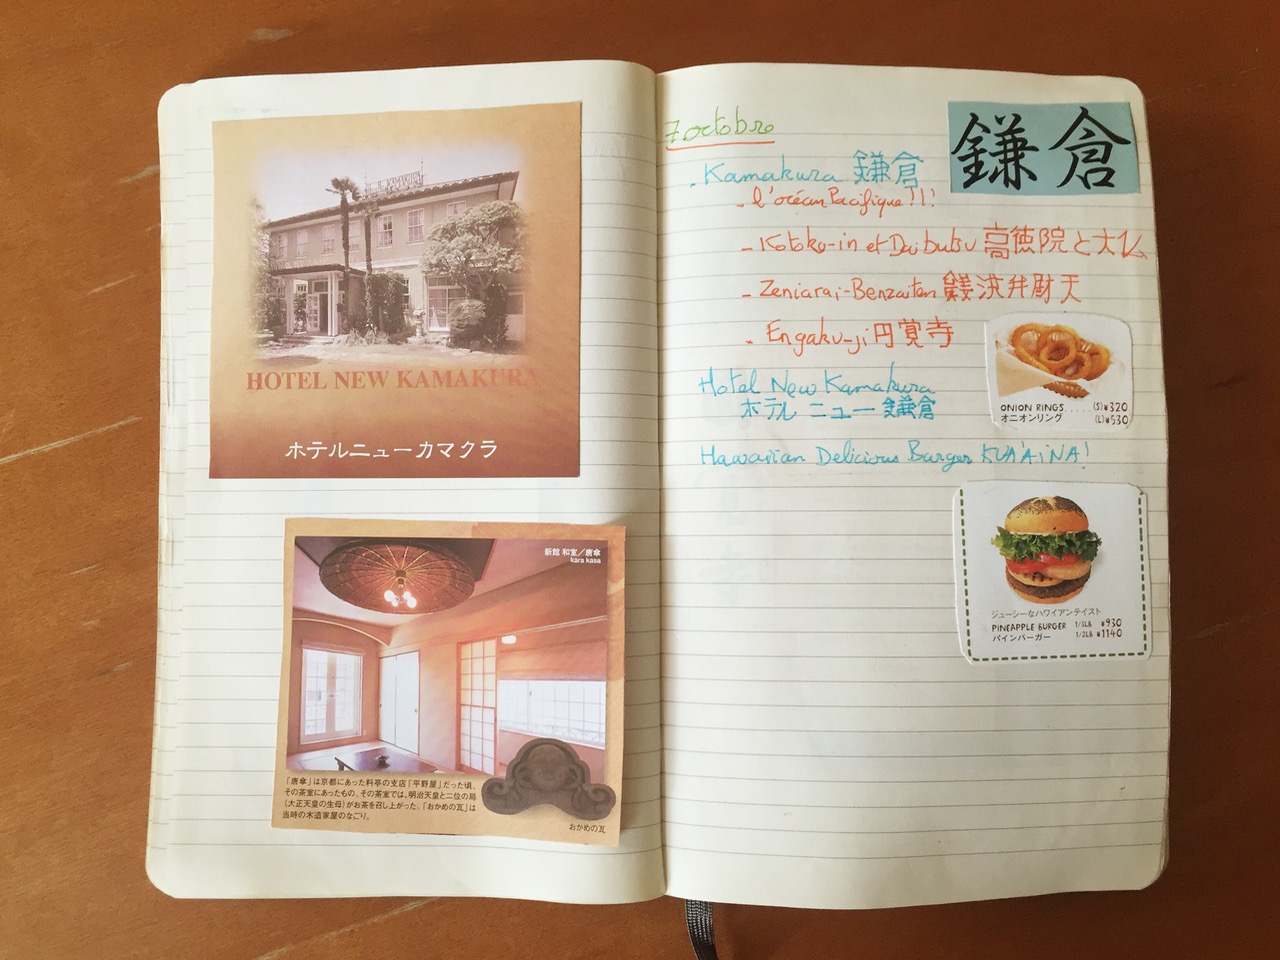 H. N. KAMAKURA
HOTEL NEW KAMAKURA
ホテルニューカマクラ
新館 和室／唐傘
kara kasa
「唐傘」は京都にあった料亭の支店「平野屋」だった頃、
その茶室にあったもの。その茶室では、明治天皇と二位の局
（大正天皇の生母）がお茶を召し上がった。「おかめの瓦」は
当時の木造家屋のなごり。
おかめの瓦
7 octobre
鎌倉
. Kamakura 鎌倉
- l'océan Pacifique!!!
- Kotoko-in et Daibutsu 高徳院と大仏
- Zeniarai-Benzaiten 銭洗弁財天
. Engaku-ji 円覚寺
Hotel New Kamakura
ホテル ニュー 鎌倉
Hawaiian Delicious Burger KUA'AINA!
ONION RINGS.....(S)¥320
オニオンリング (L)¥530
ジューシーなハワイアンテイスト
PINEAPPLE BURGER 1/3LB ¥930
パインバーガー 1/2LB ¥1140